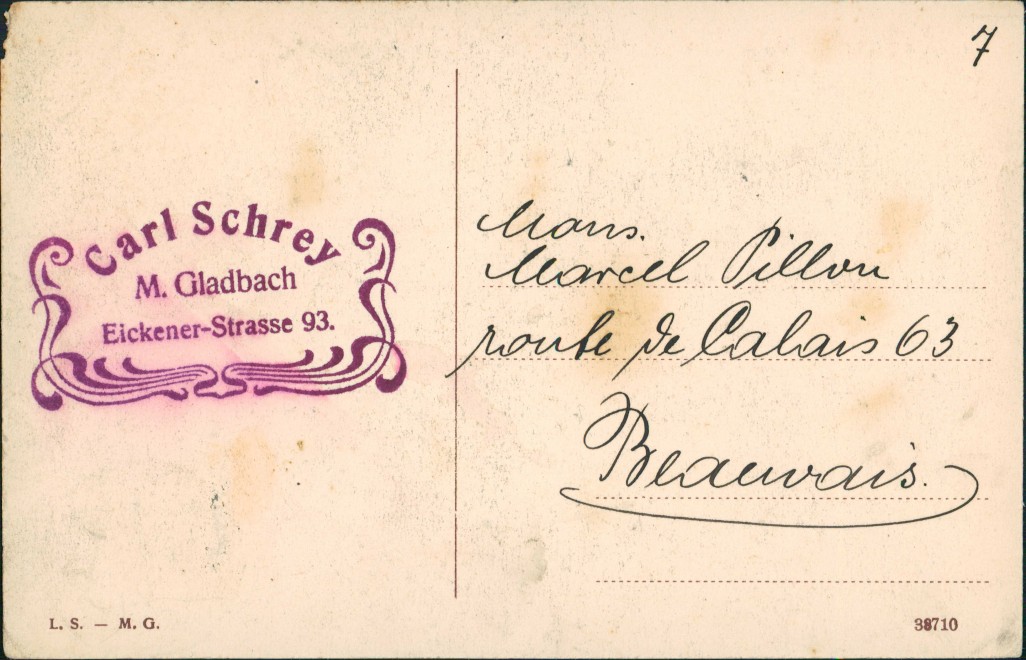 7
Carl Schrey
M. Gladbach
Eickener-Strasse 93.
Mons.
Marcel Pillon
route de Calais 63
Beauvais.
L. S. — M. G.
38710